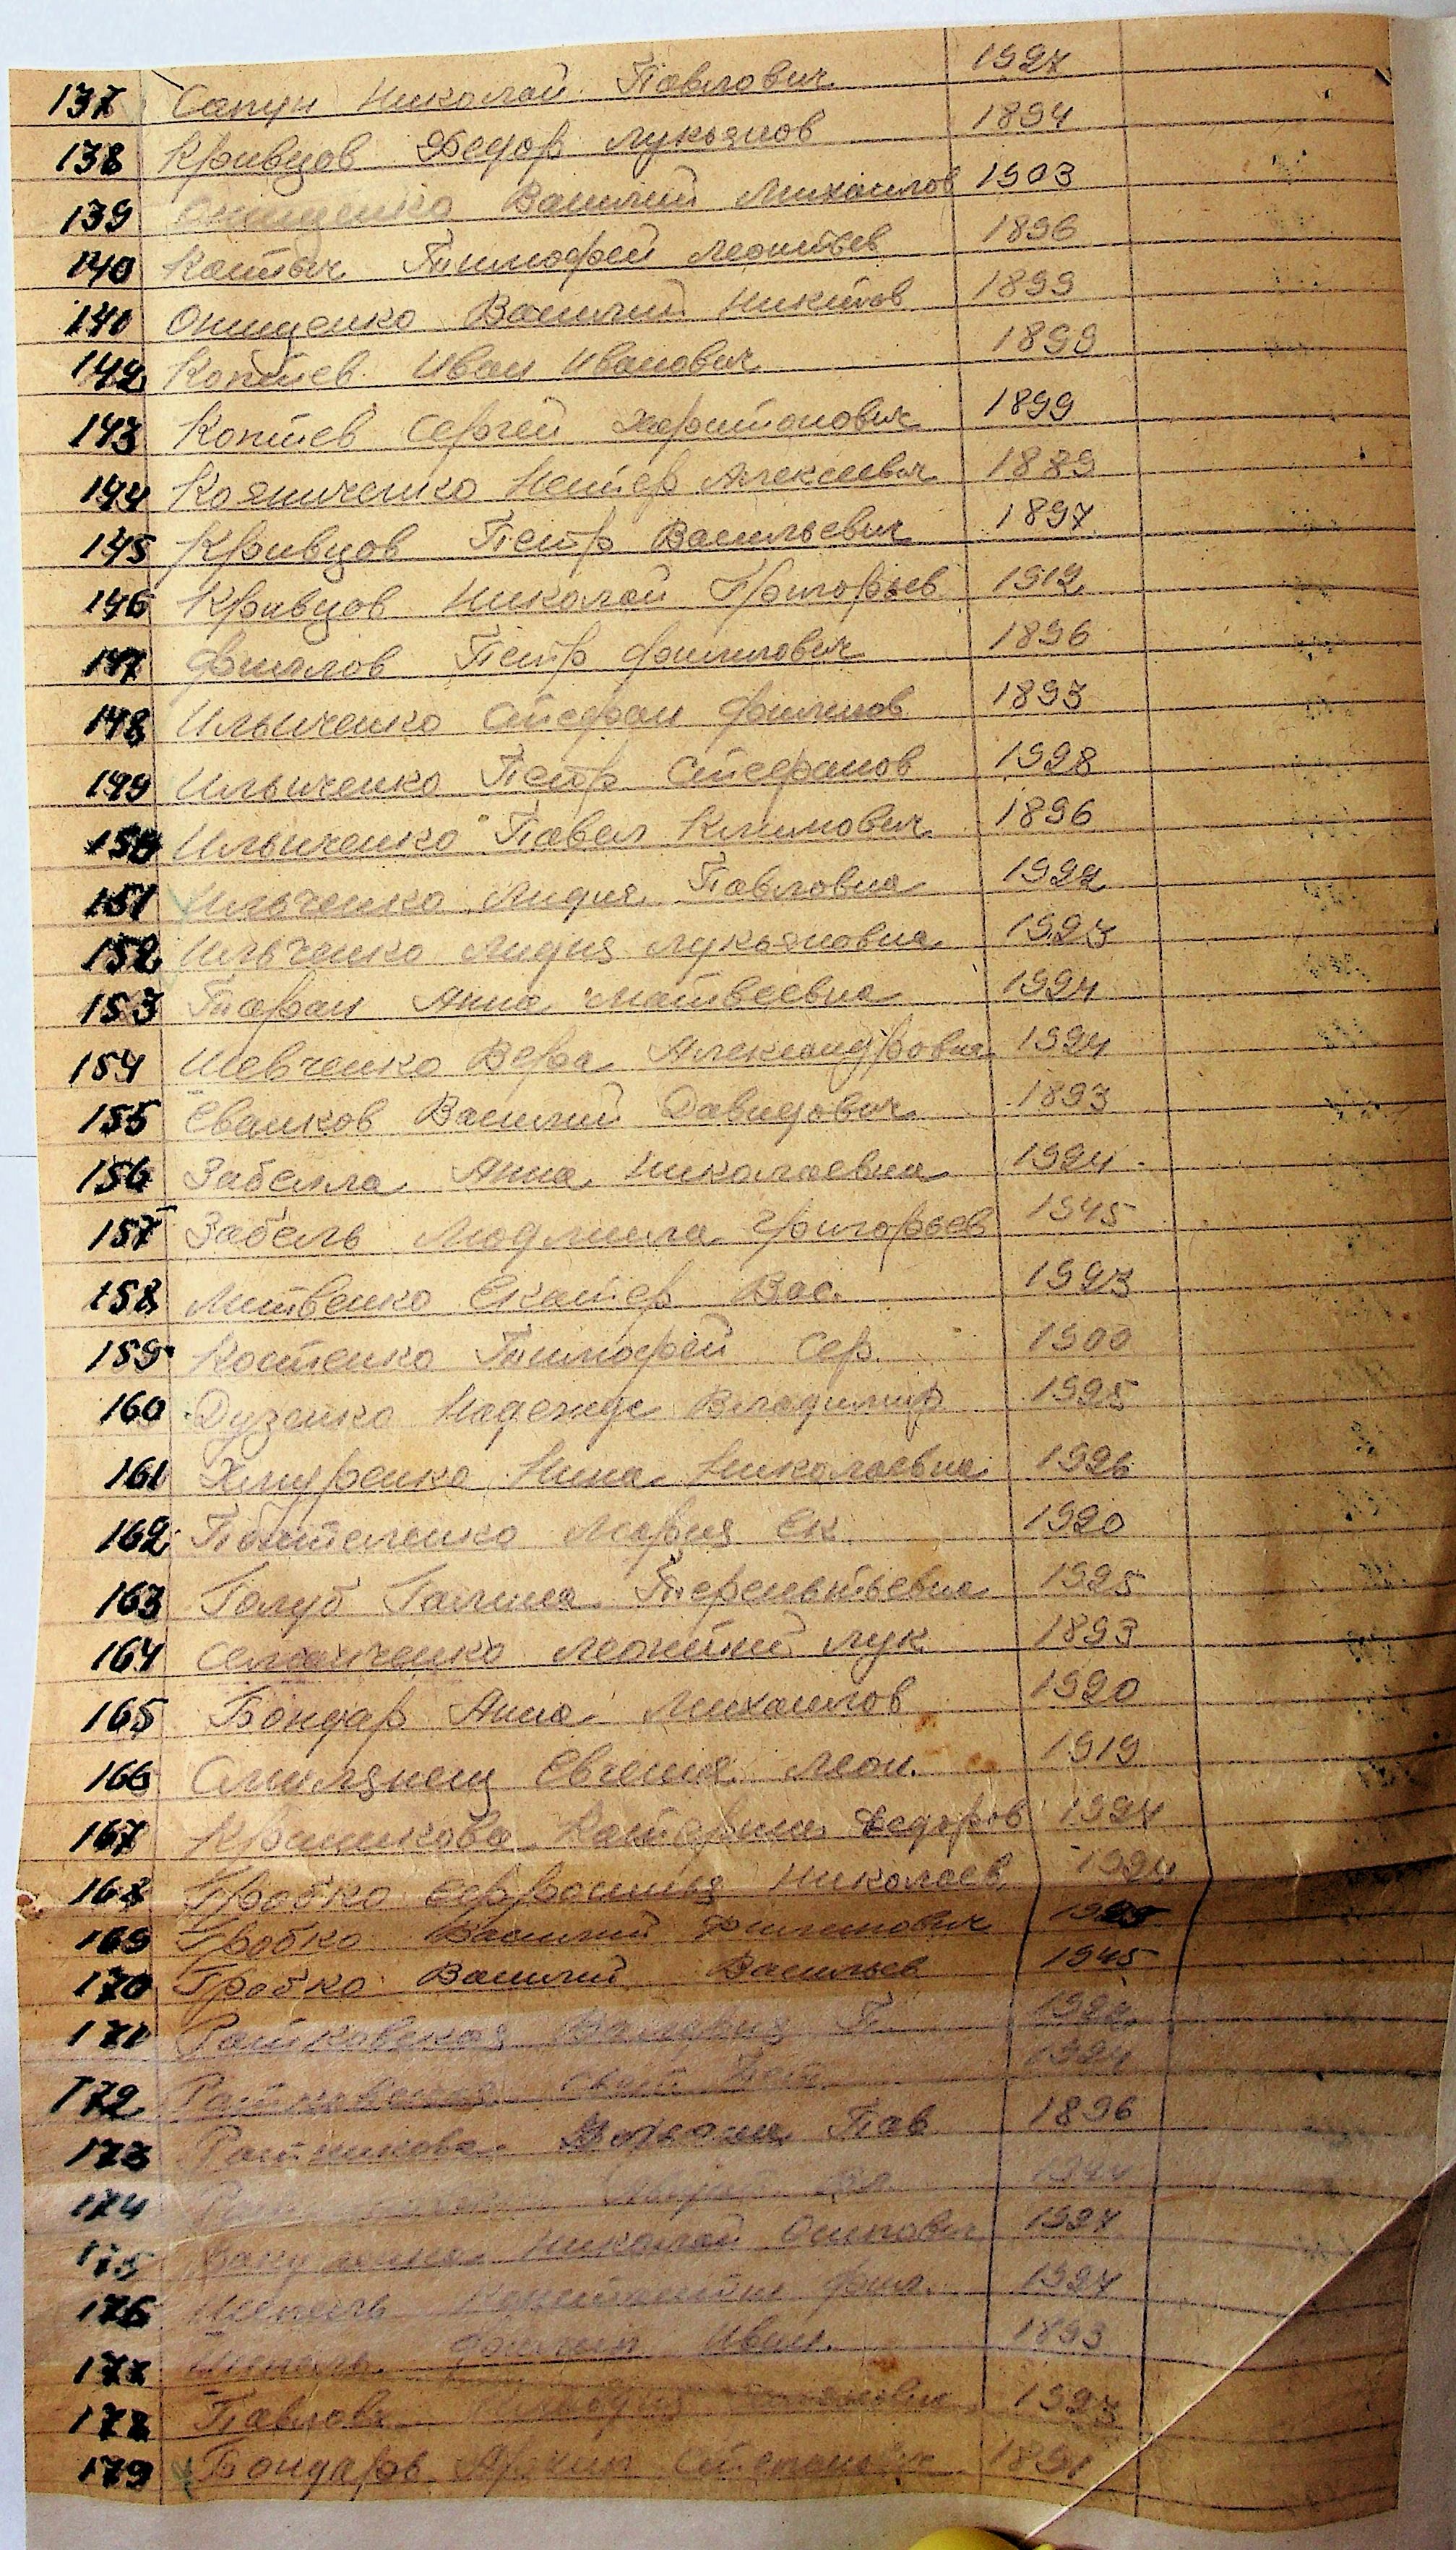 137 Сапун Николай Павлович 1927
138 Кривцов Федор Лукьянов 1894
139 Онищенко Василий Михаилов 1903
140 Тимофей Леонтьев 1896
140 Онищенко Василий Никитов 1899
142 Коптев Иван Иванович 1899
143 Коптев Сергей Харитонович 1899
144 Нестер Алексеевич 1889
145 Кривцов Петр Васильевич 1897
146 Кривцов Николай Григорьев 1912
147 Фиалов Петр Филипович 1896
148 Ильиченко Стефан Филипов 1893
149 Ильиченко Петр Стефанов 1928
150 Ильиченко Павел Климович 1896
151 Ильченко Лидия Павловна 1922
152 Ильченко Лидия Лукьяновна 1923
153 Таран Анна Матвеевна 1924
154 Шевченко Вера Александровна 1924
155 Еванков Василий Давидович 1893
156 Забелла Анна Николаевна 1924
157 Забель Людмила Григорьев 1945
158 Литвенко Екатер Вас. 1923
159 Костенко Тимофей Сер. 1900
160 Дузенко Надежда Владимир 1925
161 Хмуренко Нина Николаевна 1926
162 Мария Ек 1920
163 Голуб Галина Терентьевна 1925
164 Леонтий Лук 1893
165 Бондар Анна Михаилов 1920
166 Смилянец Евгения Леон. 1919
167 Квашикова Катерина Федоров 1924
168 Гробко Ефросинья Николаев 1924
169 Гробко Василий Филипович
170 Гробко Василий Васильев 1945
171 Ратковская Валерия П. 1922
172 1924
173 Ратникова Пав 1896
174
175 Николай Осипович 1927
176 Шепель Константин Фил. 1927
177 Филип Иван. 1893
178 Павлова 1923
179 Бондарев Архип Степанович 1891